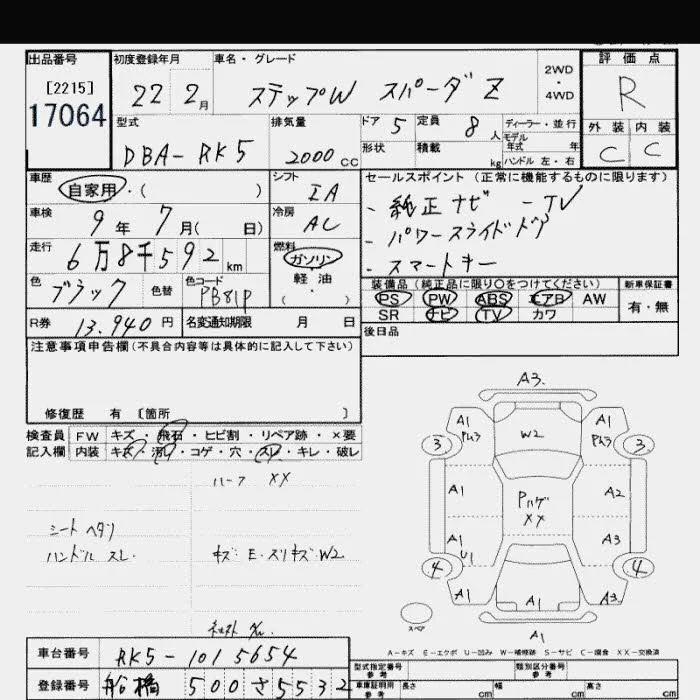 出品番号 初度登録年月 車名・グレード 2WD・4WD 評価点
[2215]
17064
22 2月 ステップW スパーダZ R
型式 排気量 ドア 5 定員 8人 ディーラー・並行 外装 内装
モデル年式 年
DBA-RK5 2000cc 形状 積載 kg ハンドル 左・右 C C
車歴 自家用・( ) シフト IA セールスポイント(正常に機能するものに限ります)
車検 9年 7月( 日) 冷房 AC
- 純正ナビ - TV
- パワースライドドア
- スマートキー
走行 6万8千592km 燃料 ガソリン・軽油・( )
色 ブラック 色替 色コード PB81P
装備品(純正品に限り〇をつけてください) 新車保証書
PS PW ABS エアB AW 有・無
SR ナビ TV カワ
R券 13,940円 名変通知期限 月 日
後日品
注意事項申告欄(不具合内容等は具体的に記入して下さい)
修復歴 有 [箇所 ]
検査員 FW キズ・飛石・ヒビ割・リペア跡・×要
記入欄 内装 キズ・汚レ・コゲ・穴・スレ・キレ・破レ
ハーフ XX
シート ヘタリ
ハンドル スレ キズ・E・スリキズ・W2
A3
A1 A1
3 W2 3
A1 Pハゲ XX A2
A1 A3
U1
4 4
A1 A1 A3
スペア
A1
A-キズ E-エクボ U-凹み W-補修跡 S-サビ C-腐食 XX-交換済
車台番号 RK5-1015654
型式指定番号 参考 類別区分番号 参考
登録番号 船橋 500 さ 5532
車庫証明用 参考 長さ cm 幅 cm 高さ cm